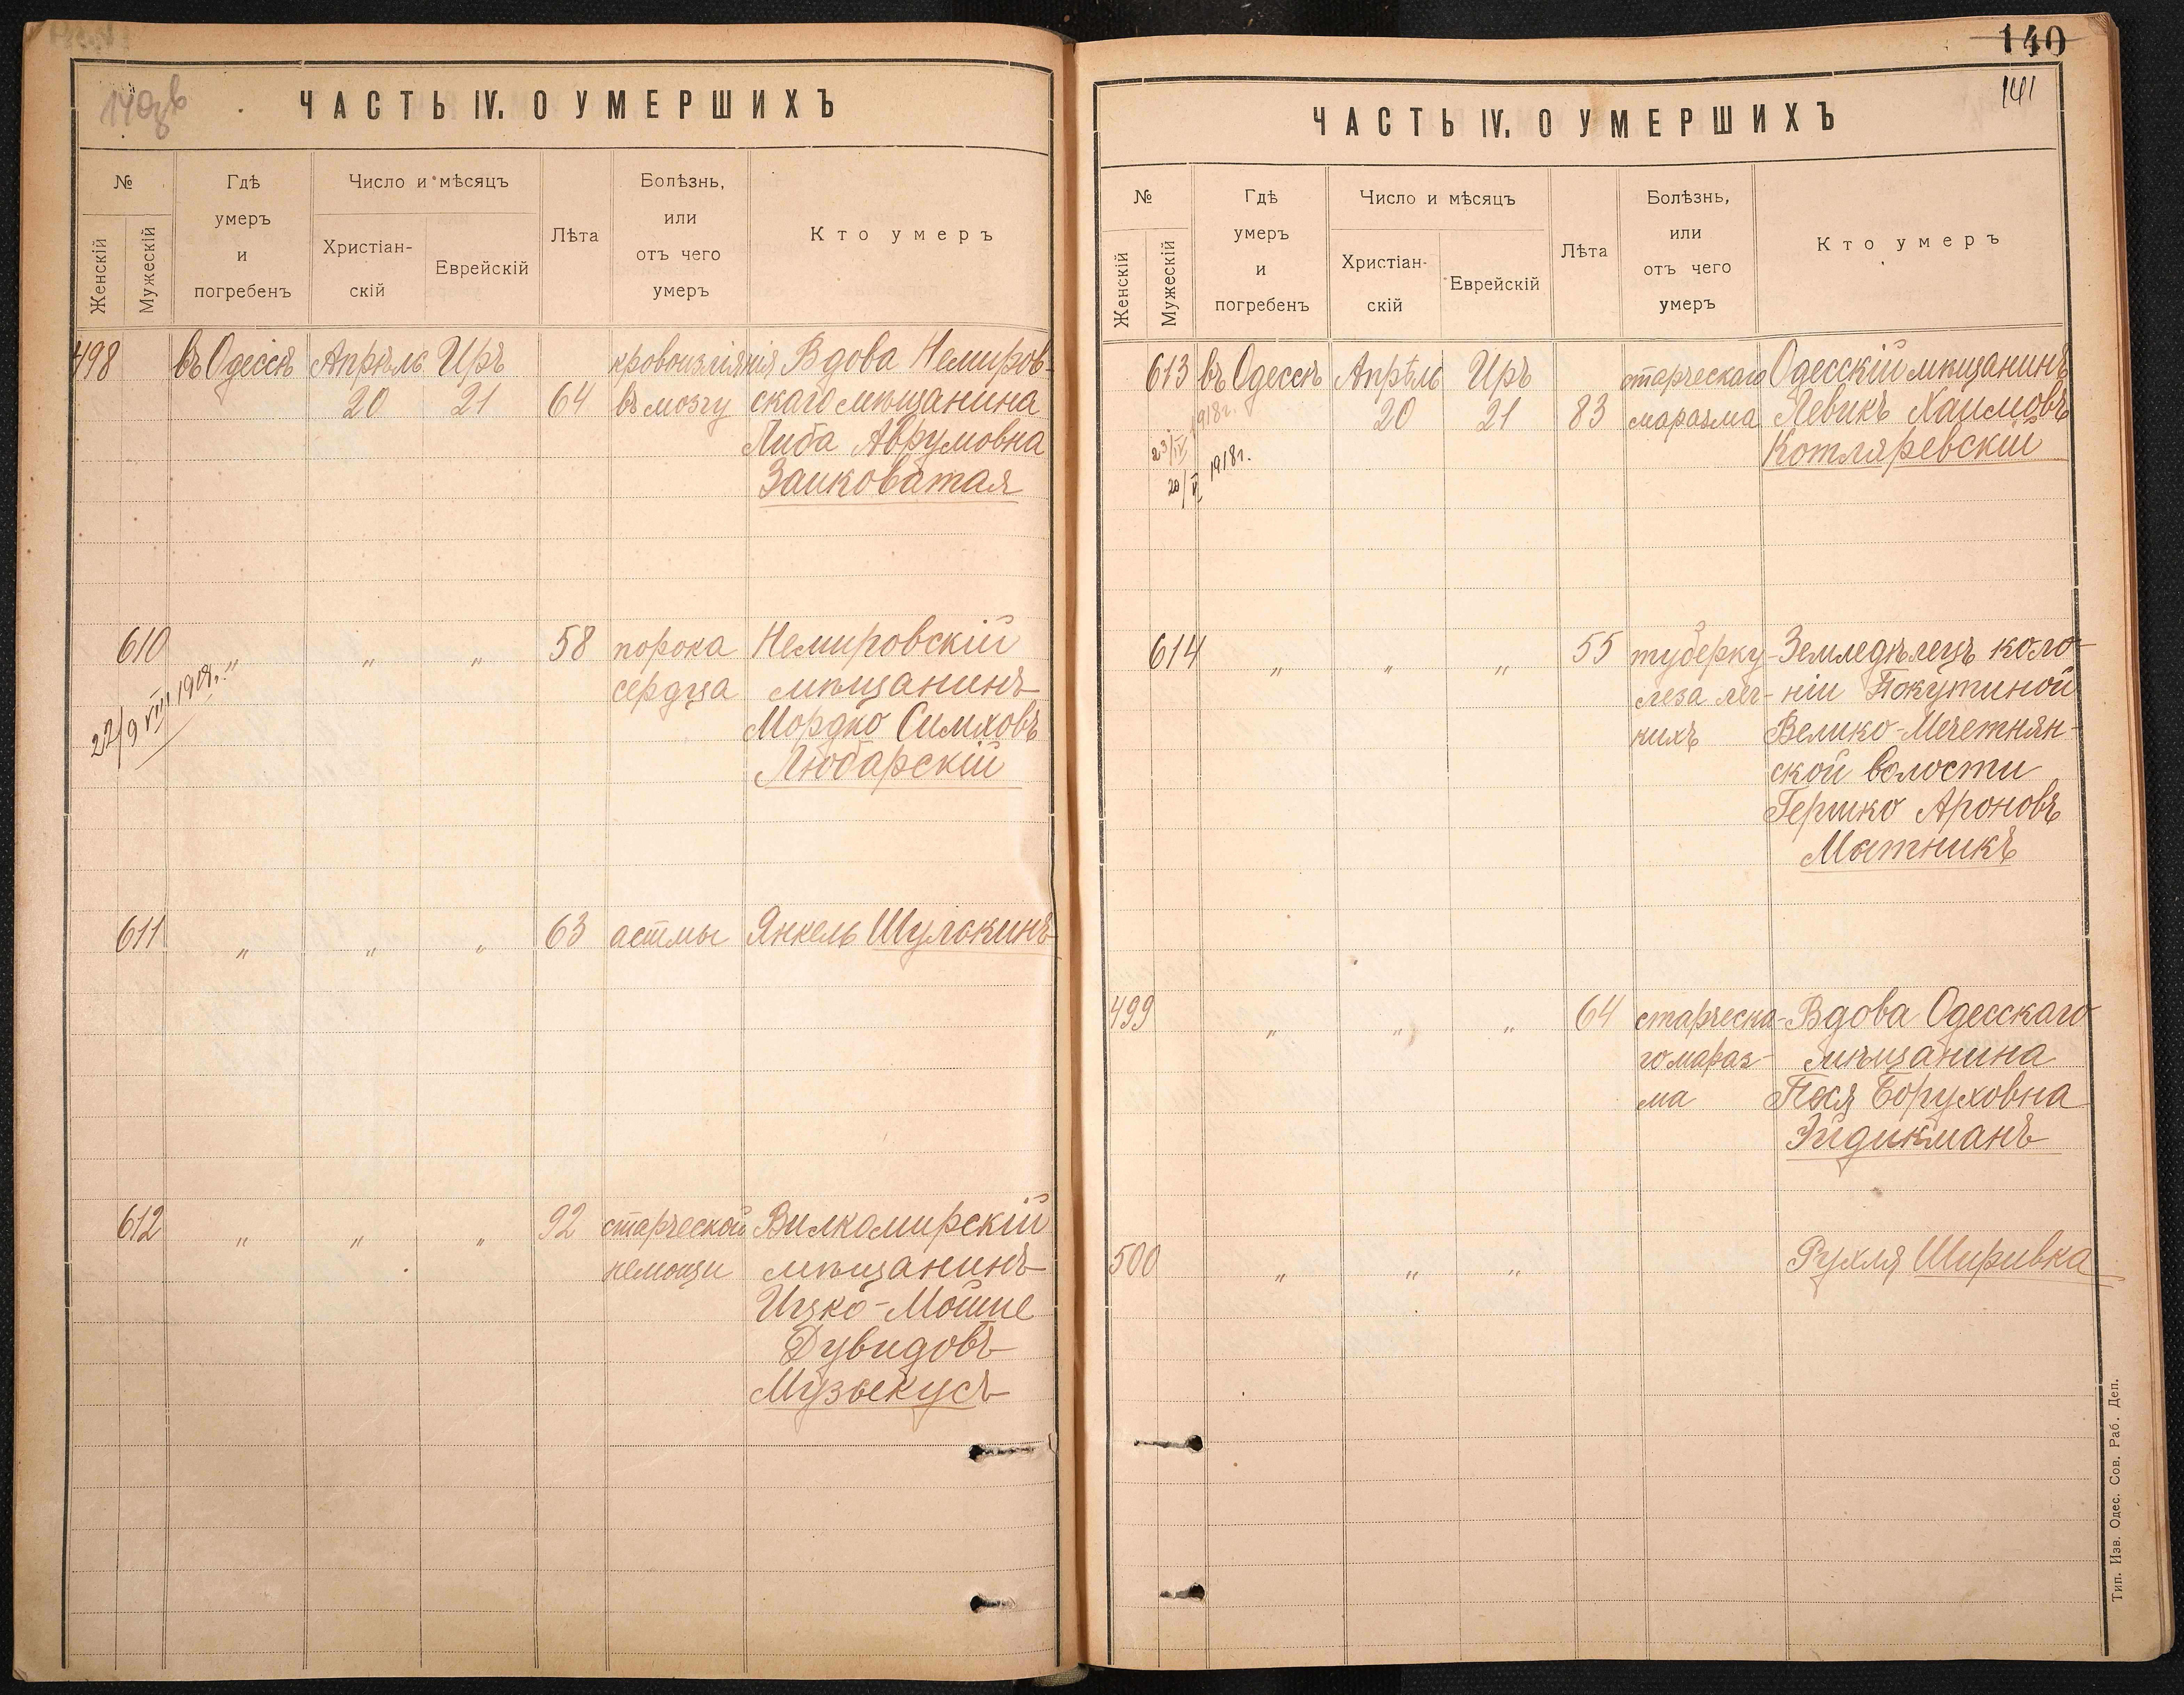 140 об
ЧАСТЬ IV. О УМЕРШИХЪ
№
Женскій
Мужескій
Гдѣ
умеръ
и
погребенъ
Число и мѣсяцъ
Христіан-
скій
Еврейскій
Лѣта
Болѣзнь,
или
отъ чего
умеръ
Кто умеръ
498 въ Одессѣ Апрѣль Иръ кровоизліянія Вдова Немиров-
20 21 64 въ мозгу скаго мѣщанина
Либа Аврумовна
Заиковатая
610 " " " 58 порока Немировскій
сердца мѣщанинъ
Мордко Симховъ
Любарскій
611 " " " 63 астмы Янкель Шулокинъ
612 " " " 92 старческой Вилкомирскій
немощи мѣщанинъ
Ицко-Мойше
Дувидовъ
Музыкусъ
140
141
ЧАСТЬ IV. О УМЕРШИХЪ
№
Женскій
Мужескій
Гдѣ
умеръ
и
погребенъ
Число и мѣсяцъ
Христіан-
скій
Еврейскій
Лѣта
Болѣзнь,
или
отъ чего
умеръ
Кто умеръ
613 въ Одессѣ Апрѣль Иръ старческаго Одесскій мѣщанинъ
20 21 83 маразма Левикъ Хаимовъ
Котляревскій
1918г.
23/IV
20/VI 1918г.
614 " " " 55 туберку- Земледѣлецъ коло-
леза лег- ніи Покутиной
кихъ Велико-Мечетнян-
ской волости
Гершко Ароновъ
Мотникъ
499 " " " 64 старческа- Вдова Одесскаго
го мараз- мѣщанина
ма Песя Боруховна
Эйдикманъ
500 " " " Рухля Ширивка
Тип. Изв. Одес. Сов. Раб. Деп.